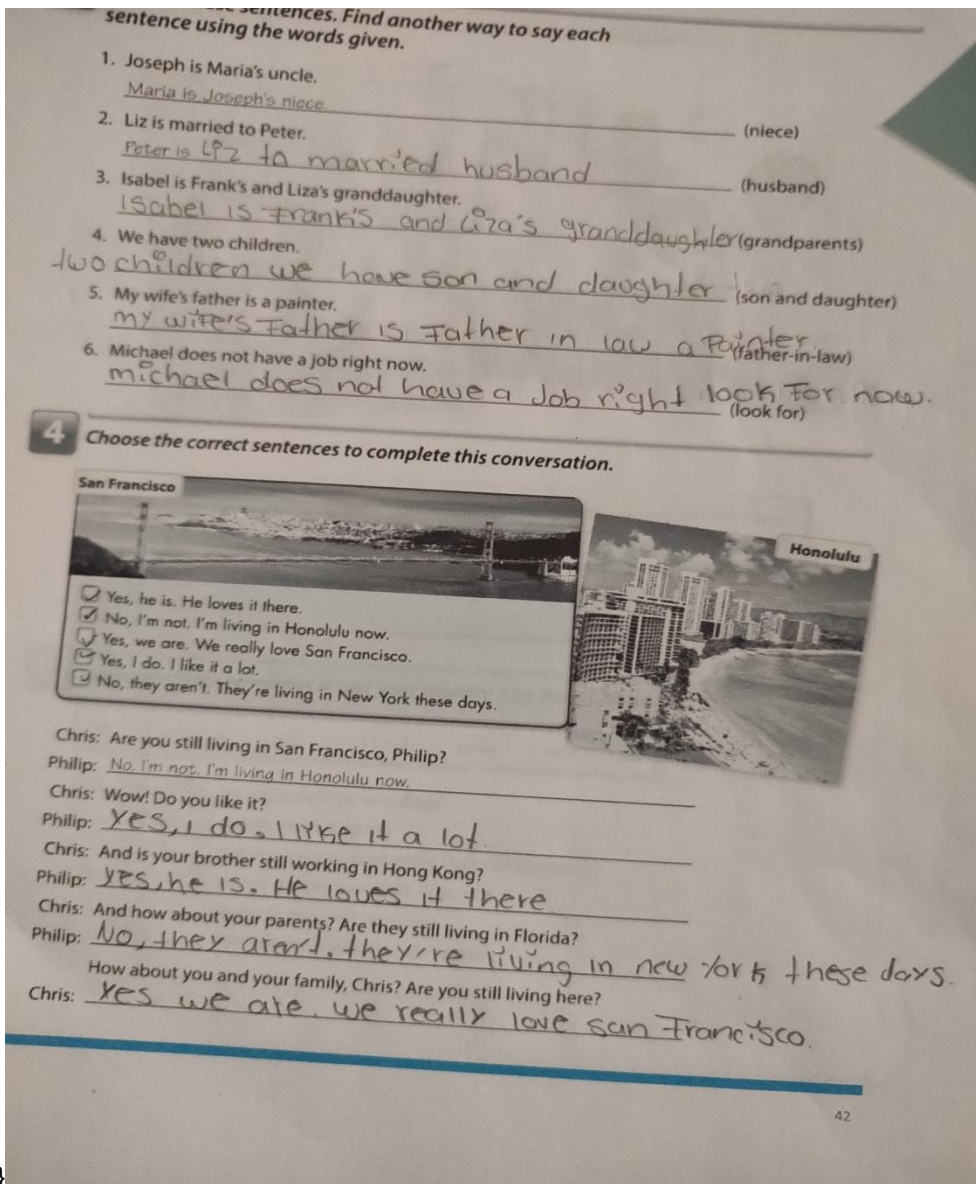 sentences. Find another way to say each
sentence using the words given.
1. Joseph is Maria's uncle.
Maria is Joseph's niece.
(niece)
2. Liz is married to Peter.
Peter is Liz to married husband
(husband)
3. Isabel is Frank's and Liza's granddaughter.
Isabel is Frank's and Liza's granddaughter (grandparents)
4. We have two children.
two children we have son and daughter (son and daughter)
5. My wife's father is a painter.
my wife's Father is Father in law a Painter.
(father-in-law)
6. Michael does not have a job right now.
michael does not have a Job right look For now.
(look for)
4 Choose the correct sentences to complete this conversation.
San Francisco
Honolulu
Yes, he is. He loves it there.
No, I'm not. I'm living in Honolulu now.
Yes, we are. We really love San Francisco.
Yes, I do. I like it a lot.
No, they aren't. They're living in New York these days.
Chris: Are you still living in San Francisco, Philip?
Philip: No, I'm not. I'm living in Honolulu now.
Chris: Wow! Do you like it?
Philip: Yes, I do. I like it a lot.
Chris: And is your brother still working in Hong Kong?
Philip: yes, he is. He loves it there.
Chris: And how about your parents? Are they still living in Florida?
Philip: No, they aren't. they're living in new York these days.
How about you and your family, Chris? Are you still living here?
Chris: Yes we are. we really love san Francisco.
42